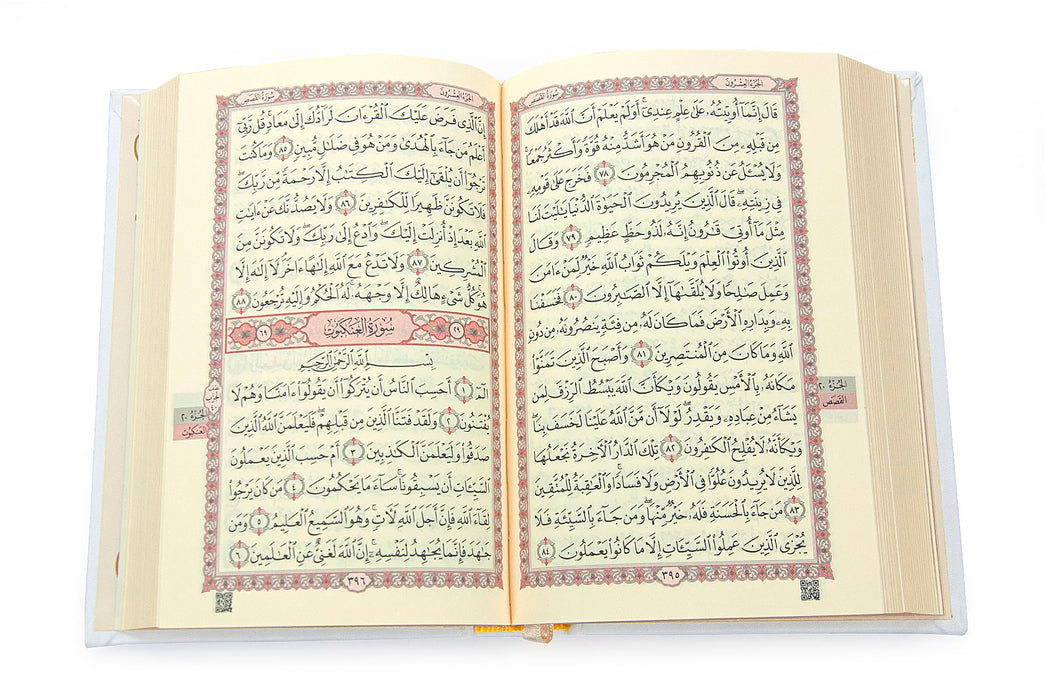 الجزء العشرون
سورة القصص
قَالَ إِنَّمَآ أُوتِيتُهُۥ عَلَىٰ عِلْمٍ عِندِىٓ أَوَلَمْ يَعْلَمْ أَنَّ ٱللَّهَ قَدْ أَهْلَكَ
مِن قَبْلِهِۦ مِنَ ٱلْقُرُونِ مَنْ هُوَ أَشَدُّ مِنْهُ قُوَّةً وَأَكْثَرُ جَمْعًا
وَلَا يُسْـَٔلُ عَن ذُنُوبِهِمُ ٱلْمُجْرِمُونَ ٧٨ فَخَرَجَ عَلَىٰ قَوْمِهِۦ
فِى زِينَتِهِۦ قَالَ ٱلَّذِينَ يُرِيدُونَ ٱلْحَيَوٰةَ ٱلدُّنْيَا يَٰلَيْتَ لَنَا
مِثْلَ مَآ أُوتِىَ قَٰرُونُ إِنَّهُۥ لَذُو حَظٍّ عَظِيمٍ ٧٩ وَقَالَ
ٱلَّذِينَ أُوتُوا۟ ٱلْعِلْمَ وَيْلَكُمْ ثَوَابُ ٱللَّهِ خَيْرٌ لِّمَنْ ءَامَنَ
وَعَمِلَ صَٰلِحًا وَلَا يُلَقَّىٰهَآ إِلَّا ٱلصَّٰبِرُونَ ٨٠ فَخَسَفْنَا
بِهِۦ وَبِدَارِهِ ٱلْأَرْضَ فَمَا كَانَ لَهُۥ مِن فِئَةٍ يَنصُرُونَهُۥ مِن دُونِ
ٱللَّهِ وَمَا كَانَ مِنَ ٱلْمُنتَصِرِينَ ٨١ وَأَصْبَحَ ٱلَّذِينَ تَمَنَّوْا۟
مَكَانَهُۥ بِٱلْأَمْسِ يَقُولُونَ وَيْكَأَنَّ ٱللَّهَ يَبْسُطُ ٱلرِّزْقَ لِمَن
يَشَآءُ مِنْ عِبَادِهِۦ وَيَقْدِرُ لَوْلَآ أَن مَّنَّ ٱللَّهُ عَلَيْنَا لَخَسَفَ بِنَا
وَيْكَأَنَّهُۥ لَا يُفْلِحُ ٱلْكَٰفِرُونَ ٨٢ تِلْكَ ٱلدَّارُ ٱلْءَاخِرَةُ نَجْعَلُهَا
لِلَّذِينَ لَا يُرِيدُونَ عُلُوًّا فِى ٱلْأَرْضِ وَلَا فَسَادًا وَٱلْعَٰقِبَةُ لِلْمُتَّقِينَ
٨٣ مَن جَآءَ بِٱلْحَسَنَةِ فَلَهُۥ خَيْرٌ مِّنْهَا وَمَن جَآءَ بِٱلسَّيِّئَةِ فَلَا
يُجْزَى ٱلَّذِينَ عَمِلُوا۟ ٱلسَّيِّـَٔاتِ إِلَّا مَا كَانُوا۟ يَعْمَلُونَ ٨٤
٣٩٥
الجزء ٢٠
القصص
الجزء العشرون
سورة القصص
إِنَّ ٱلَّذِى فَرَضَ عَلَيْكَ ٱلْقُرْءَانَ لَرَآدُّكَ إِلَىٰ مَعَادٍ قُل رَّبِّىٓ
أَعْلَمُ مَن جَآءَ بِٱلْهُدَىٰ وَمَنْ هُوَ فِى ضَلَٰلٍ مُّبِينٍ ٨٥ وَمَا كُنتَ
تَرْجُوٓا۟ أَن يُلْقَىٰٓ إِلَيْكَ ٱلْكِتَٰبُ إِلَّا رَحْمَةً مِّن رَّبِّكَ
فَلَا تَكُونَنَّ ظَهِيرًا لِّلْكَٰفِرِينَ ٨٦ وَلَا يَصُدُّنَّكَ عَنْ ءَايَٰتِ
ٱللَّهِ بَعْدَ إِذْ أُنزِلَتْ إِلَيْكَ وَٱدْعُ إِلَىٰ رَبِّكَ وَلَا تَكُونَنَّ مِنَ
ٱلْمُشْرِكِينَ ٨٧ وَلَا تَدْعُ مَعَ ٱللَّهِ إِلَٰهًا ءَاخَرَ لَآ إِلَٰهَ إِلَّا
هُوَ كُلُّ شَىْءٍ هَالِكٌ إِلَّا وَجْهَهُۥ لَهُ ٱلْحُكْمُ وَإِلَيْهِ تُرْجَعُونَ ٨٨
٢٩ سُورَةُ العَنكَبُوتِ ٦٩
بِسْمِ ٱللَّهِ ٱلرَّحْمَٰنِ ٱلرَّحِيمِ
الٓمٓ ١ أَحَسِبَ ٱلنَّاسُ أَن يُتْرَكُوٓا۟ أَن يَقُولُوٓا۟ ءَامَنَّا وَهُمْ لَا
يُفْتَنُونَ ٢ وَلَقَدْ فَتَنَّا ٱلَّذِينَ مِن قَبْلِهِمْ فَلَيَعْلَمَنَّ ٱللَّهُ ٱلَّذِينَ
صَدَقُوا۟ وَلَيَعْلَمَنَّ ٱلْكَٰذِبِينَ ٣ أَمْ حَسِبَ ٱلَّذِينَ يَعْمَلُونَ
ٱلسَّيِّـَٔاتِ أَن يَسْبِقُونَا سَآءَ مَا يَحْكُمُونَ ٤ مَن كَانَ يَرْجُوا۟
لِقَآءَ ٱللَّهِ فَإِنَّ أَجَلَ ٱللَّهِ لَءَاتٍ وَهُوَ ٱلسَّمِيعُ ٱلْعَلِيمُ ٥ وَمَن
جَٰهَدَ فَإِنَّمَا يُجَٰهِدُ لِنَفْسِهِۦٓ إِنَّ ٱللَّهَ لَغَنِىٌّ عَنِ ٱلْعَٰلَمِينَ ٦
٣٩٦
الجزء ٢٠
العنكبوت